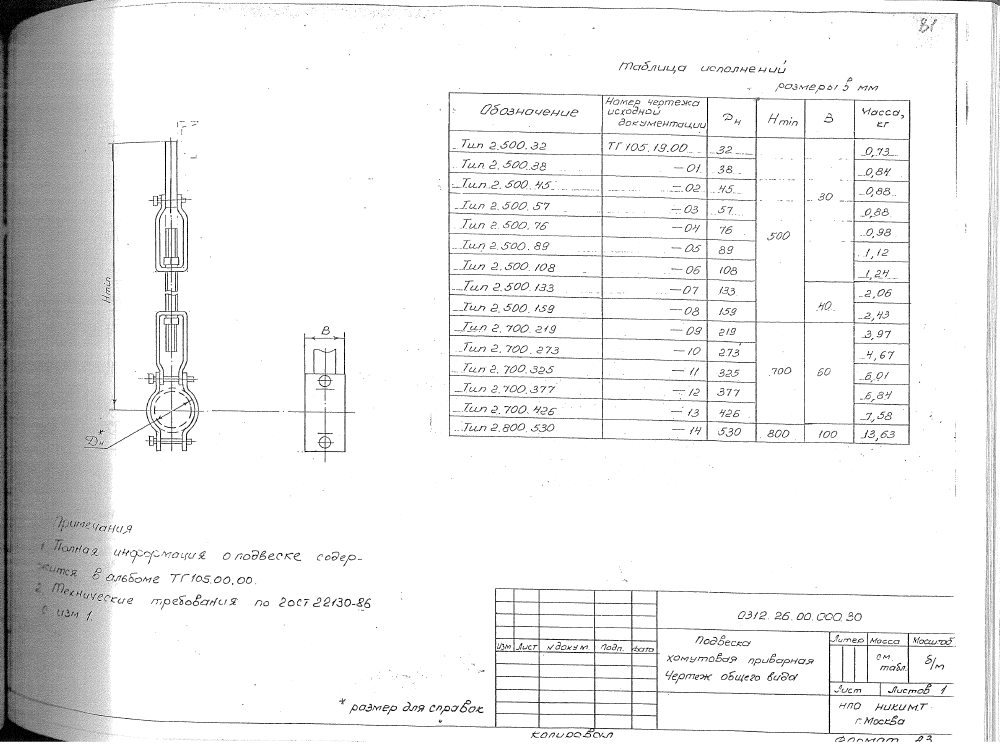 81
Таблица исполнений
размеры в мм
Обозначение Номер чертежа исходной документации Dн Hmin В Масса, кг
Тип 2.500.32 ТГ105.19.00 32 500 30 0,73
Тип 2.500.38 —01 38 0,84
Тип 2.500.45 —02 45 0,88
Тип 2.500.57 —03 57 0,88
Тип 2.500.76 —04 76 0,98
Тип 2.500.89 —05 89 1,12
Тип 2.500.108 —06 108 1,24
Тип 2.500.133 —07 133 40 2,06
Тип 2.500.159 —08 159 2,43
Тип 2.700.219 —09 219 700 60 3,97
Тип 2.700.273 —10 273 4,67
Тип 2.700.325 —11 325 6,01
Тип 2.700.377 —12 377 6,84
Тип 2.700.426 —13 426 7,58
Тип 2.800.530 —14 530 800 100 13,63
Hmin
В
Dн*
Примечания
1 Полная информация о подвеске содер-
жится в альбоме ТГ105.00.00.
2 Технические требования по ГОСТ 22130-86
с изм 1.
* размер для справок
0312.26.00.000.30
Изм Лист N докум. Подп. Дата
Подвеска
хомутовая приварная
Чертеж общего вида
Литер Масса Масштаб
см. табл. б/м
Лист Листов 1
НПО НИКИМТ
г. Москва
Копировал
Формат А3